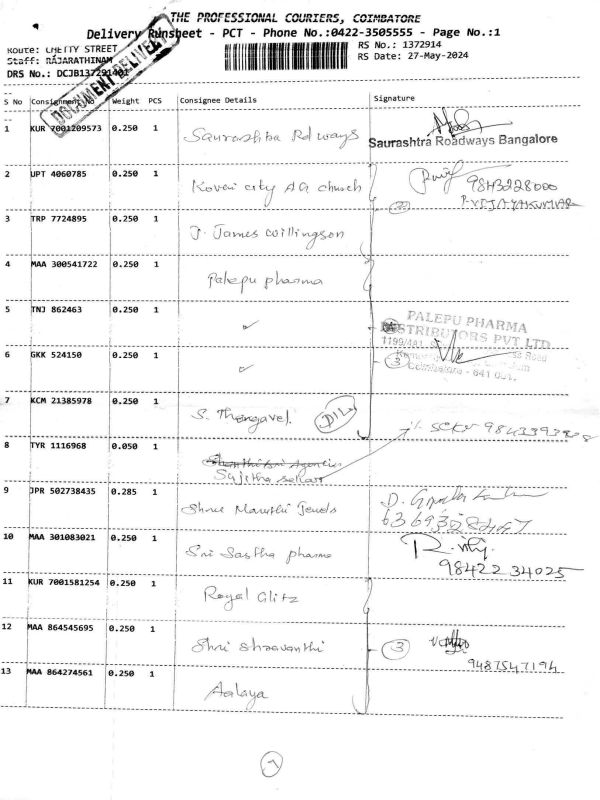 THE PROFESSIONAL COURIERS, COIMBATORE
Delivery Runsheet - PCT - Phone No.:0422-3505555 - Page No.:1
Route: CHETTY STREET
RS No.: 1372914
Staff: RAJARATHINAM
RS Date: 27-May-2024
DRS No.: DCJB137291401
DOCUMENT DELIVERY
S No Consignment No Weight PCS Consignee Details Signature
1 KUR 7001209573 0.250 1 Saurashtra Rd ways
Saurashtra Roadways Bangalore
2 UPT 4060785 0.250 1 Koveri city AG church 9843228000
P. VIJAYAKUMAR
3 TRP 7724895 0.250 1 J. James Willingson
4 MAA 300541722 0.250 1 Palepu pharma
5 TNJ 862463 0.250 1 ✓
PALEPU PHARMA
DISTRIBUTORS PVT LTD
6 GKK 524150 0.250 1 ✓ 3
Coimbatore - 641
7 KCM 21385978 0.250 1 S. Thangavel.
8 TYR 1116968 0.050 1
Sujitha sekar
9 JPR 502738435 0.285 1 Shree Maruthi Jewels
10 MAA 301083021 0.250 1 Sri Sastha pharma
98422 34025
11 KUR 7001581254 0.250 1 Royal Glitz
12 MAA 864545695 0.250 1 Shri Shravanthi 3
9487547194
13 MAA 864274561 0.250 1 Aalaya